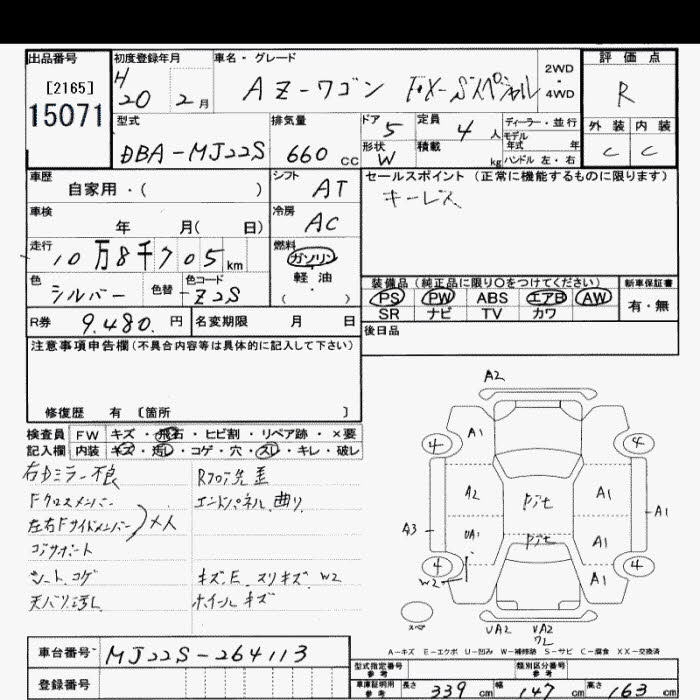 出品番号
[2165]
15071
初度登録年月
H 20 2月
車名・グレード
AZ-ワゴン FX-Sスペシャル
2WD・4WD
評価点
R
外装 内装
C C
型式
DBA-MJ22S
排気量
660 cc
ドア 5
形状 W
定員 4人
積載 kg
ディーラー・並行
モデル年式 年
ハンドル 左・右
車歴
自家用・( )
シフト
AT
車検
年 月( 日)
冷房
AC
走行
10万8千705km
燃料
ガソリン
軽・油
( )
色
シルバー
色替
色コード
Z2S
R券 9,480.円
名変期限 月 日
セールスポイント(正常に機能するものに限ります)
キーレス
装備品(純正品に限り○をつけてください)
PS PW ABS エアB AW
SR ナビ TV カワ
新車保証書
有・無
後日品
注意事項申告欄(不具合内容等は具体的に記入して下さい)
修復歴 有 〔箇所 〕
検査員記入欄
FW キズ・飛石・ヒビ割・リペア跡・×要
内装 キズ・汚レ・コゲ・穴・スレ・キレ・破レ
右Dミラー不良
Fクロスメンバー
左右Fサイドメンバー
コアサポート
シート、コゲ
天バリ汚レ
Rフロア
エンドパネル、曲り
キズ、E、スリキズ、W2
ホイールキズ
A2
4 A1 4
A2 Pit A1
A3 A1
UA1 Pit A1
4 A1 4
W2
スペア
UA2 UA2
ワレ
A-キズ E-エクボ U-凹み W-補修跡 S-サビ C-腐食 XX-交換済
車台番号 MJ22S-264113
登録番号
型式指定番号 参考
類別区分番号 参考
車庫証明用 参考
長さ 339 cm 幅 147 cm 高さ 163 cm